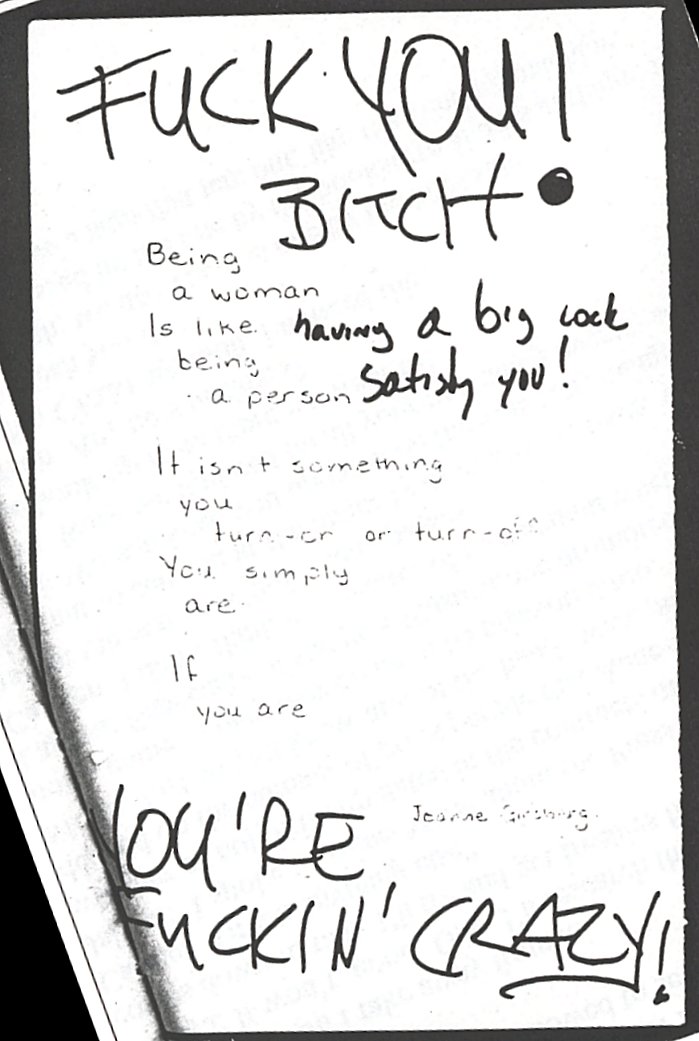 FUCK YOU!
BITCH
Being
a woman
Is like having a big cock
being
a person satisfy you!
It isn't something
you
turn-on or turn-off
You simply
are
If
you are
Jeanne
YOU'RE
FUCKIN' CRAZY!